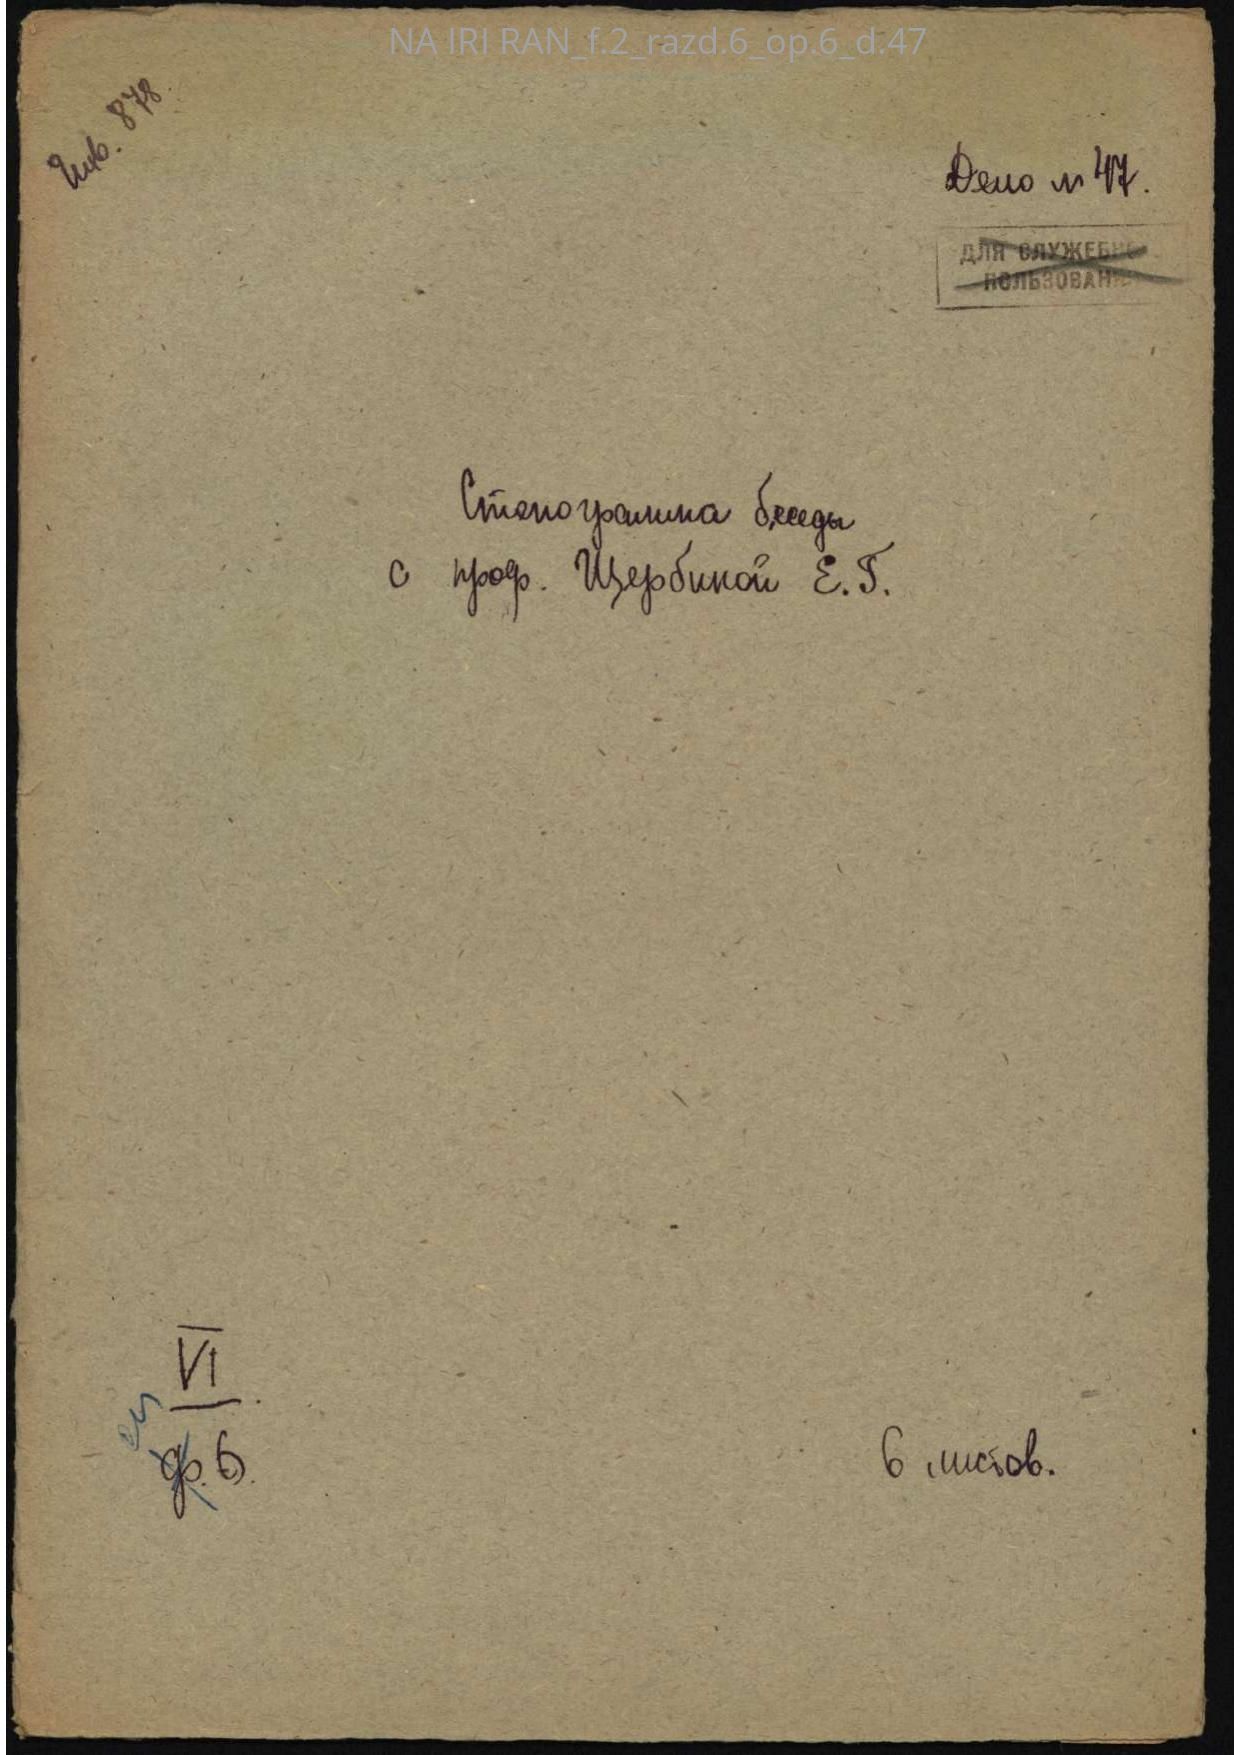 NA IRI RAN_f.2_razd.6_op.6_d.47
Инв. 878
Дело № 47.
ДЛЯ СЛУЖЕБНО
ПОЛЬЗОВАНИ
Стенограмма беседы
с проф. Щербиной Е.Г.
VI
ф. 6.
6 листов.